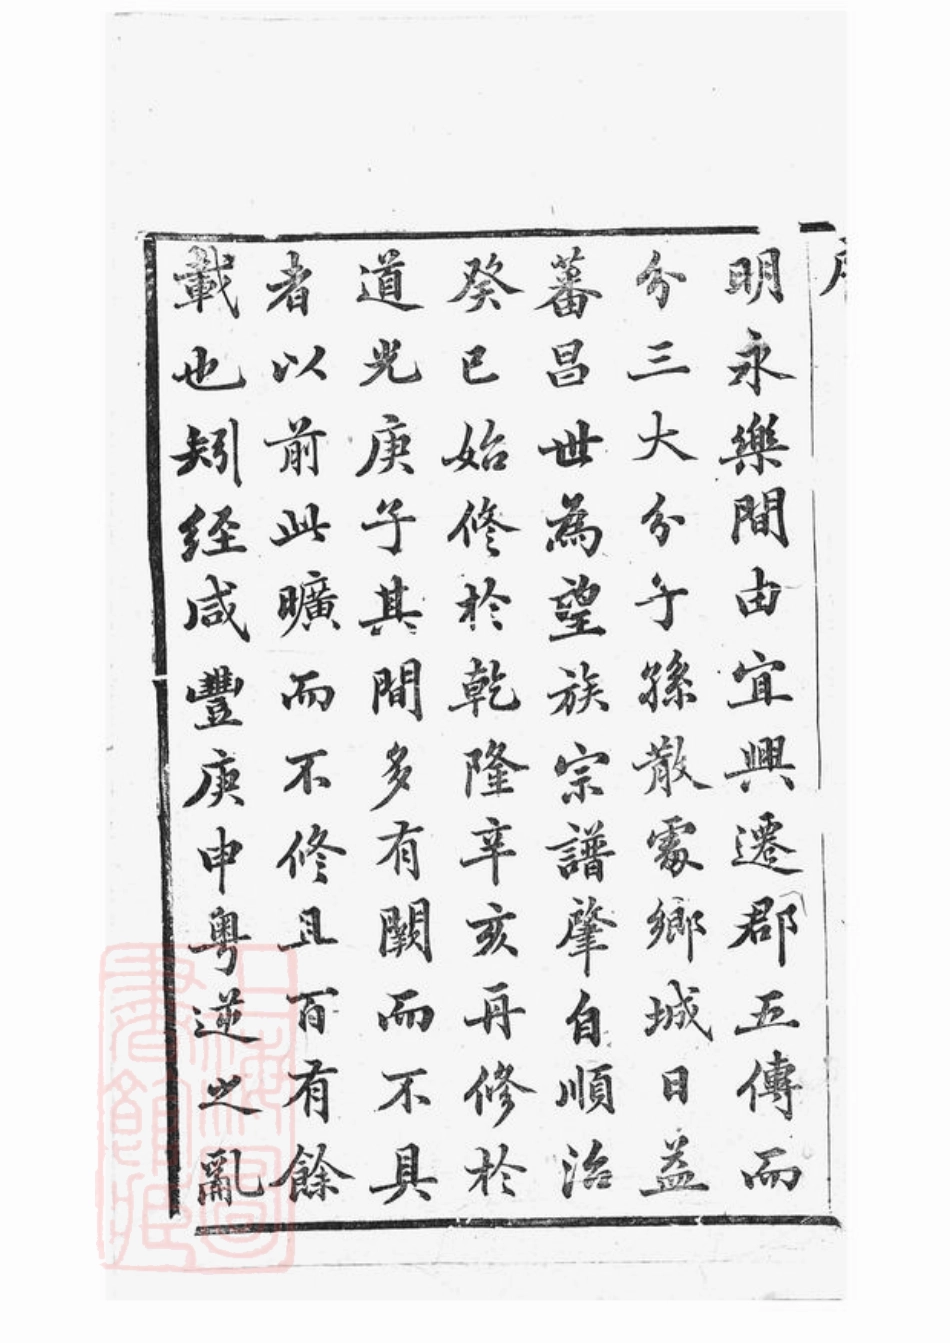 明永樂間由宜興遷郡五傳而
分三大分子孫散處鄉城日益
蕃昌世為望族宗譜肇自順治
癸巳始修於乾隆辛亥再修於
道光庚子其間多有闕而不具
者以前此曠而不修且百有餘
載也矧経咸豐庚申粤逆之亂
上海圖書館藏